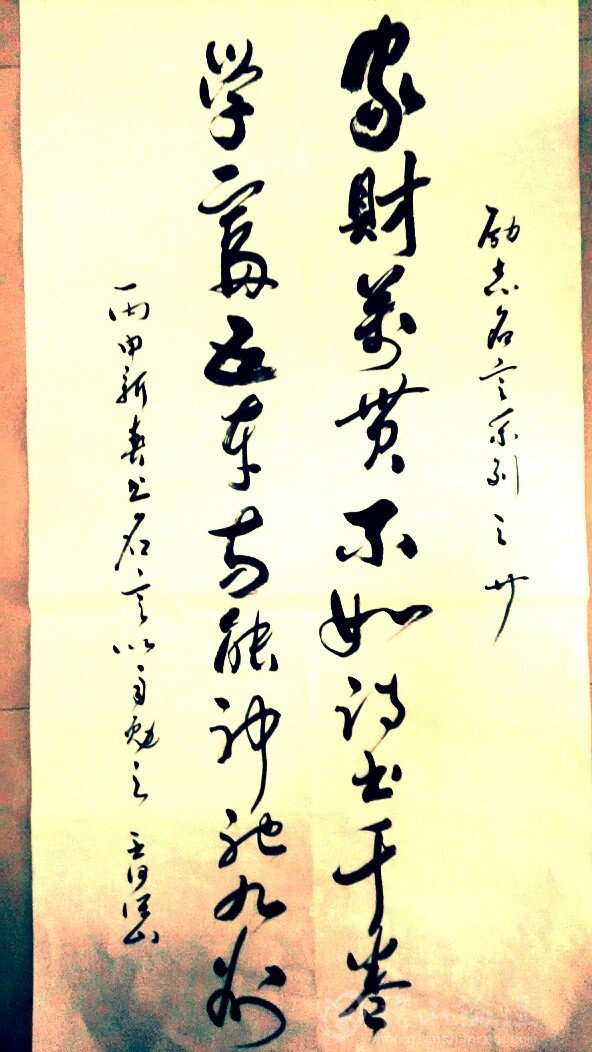 励志名言系列之廿
家财万贯不如诗书千卷
学富五车方能神驰九州
丙申新春书名言以自勉之